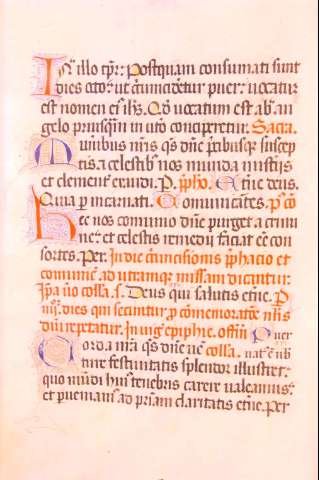 In illo tpr: Postquam consumati sunt
dies octo: ut circumcideretur puer: uocatur
est nomen eius ihs. Qd uocatum est ab an
gelo priusqm in utero conciperetur. Sacra.
Muneribus nris qs dne precibusq suscep
tis: a celestib nos munda misterijs
et clementer exaudi. P. Prefacio. Eterne deus.
Quia per incarnati. Comunicantes. Postco
Hec nos comunio dne purget a crimi
ne: et celestis remedij faciat esse con
sortes. Per. In die circuncisionis prephacio et
comunicantes. ad utramque missam dicuntur.
Ipa uero collecta. s. Deus qui salutis eterne. P
dies qui secuntur pro comemoratione
dicitur repetatur. In uigilia epiphanie. officium Puer
Corda nra qs dne collecta. natus est nob
ture festiuitatis splendor illustret:
quo mundi huius tenebris carere ualeamus:
et perueniamus ad patriam claritatis eterne. Per